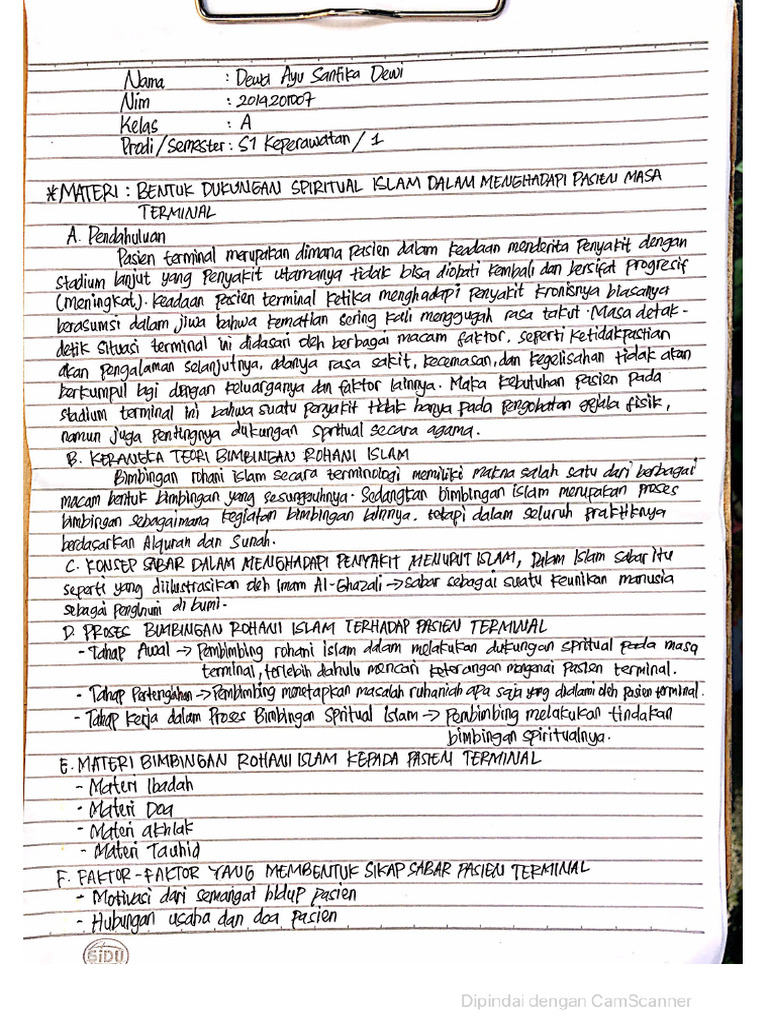 Nama : Dewa Ayu Santika Dewi
Nim : 2014201007
Kelas : A
Prodi/Semester : S1 Keperawatan / 1
*MATERI : BENTUK DUKUNGAN SPIRITUAL ISLAM DALAM MENGHADAPI PASIEN MASA
TERMINAL
A. Pendahuluan
Pasien terminal merupakan dimana pasien dalam keadaan menderita penyakit dengan
stadium lanjut yang penyakit utamanya tidak bisa diobati kembali dan bersifat progresif
(meningkat). Keadaan pasien terminal ketika menghadapi penyakit kronisnya biasanya
berasumsi dalam jiwa bahwa kematian sering kali menggugah rasa takut. Masa detak-
detik situasi terminal ini didasari oleh berbagai macam faktor, seperti ketidakpastian
akan pengalaman selanjutnya, adanya rasa sakit, kecemasan, dan kegelisahan tidak akan
berkumpul lagi dengan keluarganya dan faktor lainnya. Maka kebutuhan pasien pada
stadium terminal ini bahwa suatu penyakit tidak hanya pada pengobatan gejala fisik,
namun juga pentingnya dukungan spritual secara agama.
B. KERANGKA TEORI BIMBINGAN ROHANI ISLAM
Bimbingan rohani islam secara terminologi memiliki makna salah satu dari berbagai
macam bentuk bimbingan yang sesungguhnya. Sedangkan bimbingan islam merupakan proses
bimbingan sebagaimana kegiatan bimbingan lainnya, tetapi dalam seluruh praktiknya
berdasarkan Alquran dan Sunah.
C. KONSEP SABAR DALAM MENGHADAPI PENYAKIT MENURUT ISLAM, Dalam Islam sabar itu
seperti yang diilustrasikan oleh Imam Al-Ghazali → sabar sebagai suatu keunikan manusia
sebagai penghuni di bumi.
D. PROSES BIMBINGAN ROHANI ISLAM TERHADAP PASIEN TERMINAL
- Tahap Awal → Pembimbing rohani islam dalam melakukan dukungan spritual pada masa
terminal, terlebih dahulu mencari keterangan mengenai pasien terminal.
- Tahap Pertengahan → Pembimbing menetapkan masalah ruhaniah apa saja yang dialami oleh pasien terminal.
- Tahap Kerja dalam Proses Bimbingan Spritual Islam → Pembimbing melakukan tindakan
bimbingan spiritualnya.
E. MATERI BIMBINGAN ROHANI ISLAM KEPADA PASIEN TERMINAL
- Materi Ibadah
- Materi Doa
- Materi akhlak
- Materi Tauhid
F. FAKTOR-FAKTOR YANG MEMBENTUK SIKAP SABAR PASIEN TERMINAL
- Motivasi dari semangat hidup pasien
- Hubungan usaha dan doa pasien
SiDU
Dipindai dengan CamScanner